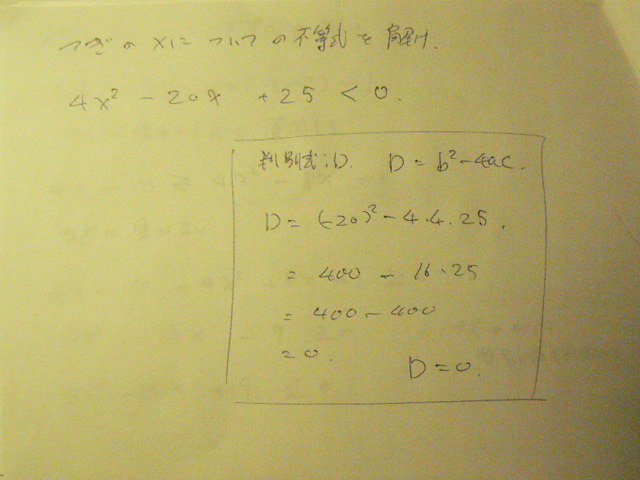 つぎの xに ついての不等式を解け.
4x² - 20x + 25 < 0.
判別式:D. D = b² - 4ac.
D = (-20)² - 4・4・25.
= 400 - 16・25
= 400 - 400
= 0. D = 0.